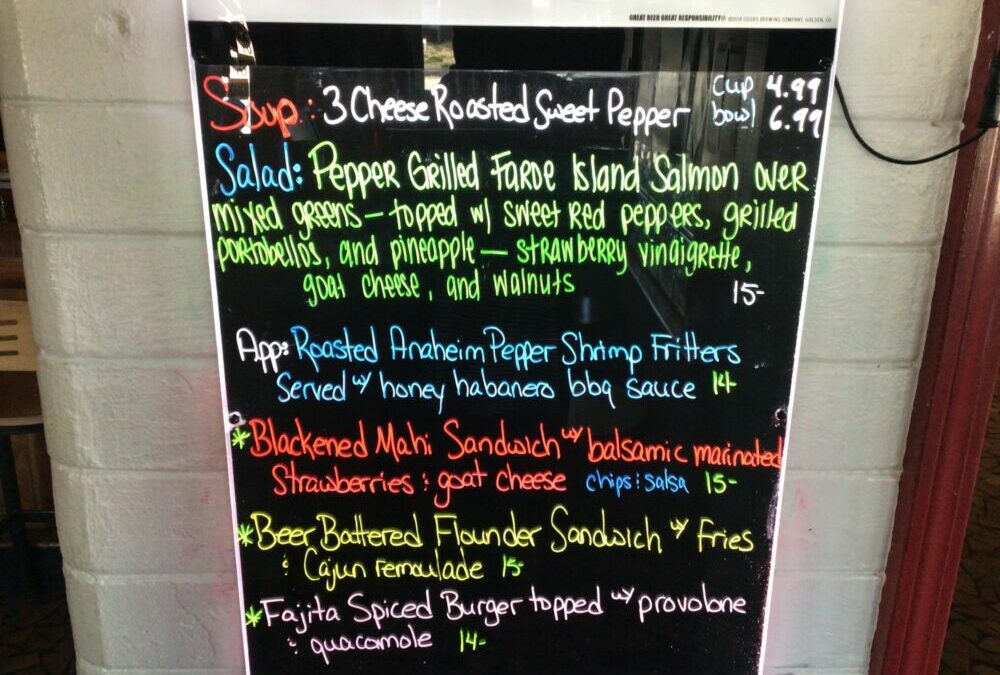 GREAT BEER GREAT RESPONSIBILITY® ©2018 COORS BREWING COMPANY, GOLDEN, CO
Soup: 3 Cheese Roasted Sweet Pepper cup 4.99
bowl 6.99
Salad: Pepper Grilled Faroe Island Salmon over
mixed greens - topped w/ sweet red peppers, grilled
portobellos, and pineapple - strawberry vinaigrette,
goat cheese, and walnuts 15-
App: Roasted Anaheim Pepper Shrimp Fritters
Served w/ honey habanero bbq sauce 14-
* Blackened Mahi Sandwich w/ balsamic marinated
Strawberries & goat cheese chips & salsa 15-
* Beer Battered Flounder Sandwich w/ Fries
& Cajun remoulade 15-
* Fajita Spiced Burger topped w/ provolone
& guacamole 14-